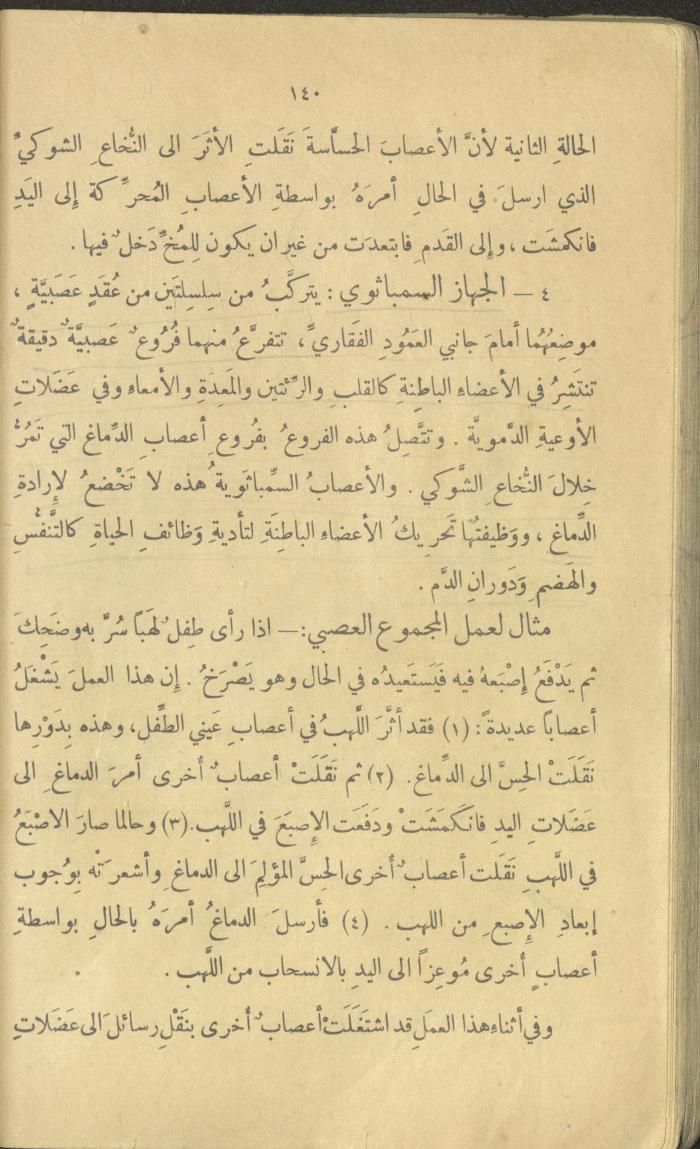 ١٤٠
الحالةِ الثانية لأنَّ الأعصابَ الحسَّاسةَ نَقَلَتِ الأثَرَ الى النُّخاعِ الشوكيِّ
الذي ارسلَ في الحالِ أمرَهُ بواسطةِ الأعصابِ المُحرِّكة إلى اليَدِ
فانكمشَت ، وإلى القَدمِ فابتعدَت من غير ان يكون لِلمُخِّ دَخلٌ فيها .
٤ — الجهاز السمباثوي : يتركَّبُ من سِلسِلتَين من عُقَدٍ عَصَبيَّةٍ ،
موضِعُهُما أمامَ جانبي العَمُودِ الفَقَاريِّ ، تتفرَّعُ منهما فُرُوعٌ عَصبيَّةٌ دقيقةٌ
تنتَشِرُ في الأعضاءِ الباطِنةِ كالقلبِ والرِّئتين والمَعِدَةِ والأمعاءِ وفي عَضَلاتِ
الأوعيةِ الدَّمويَّة . وتتَّصِلُ هذه الفروعُ بفُروعِ أعصابِ الدِّماغِ التي تَمُرُّ
خِلالَ النُّخاعِ الشَّوكي . والأعصابُ السِّمباثَويةُ هذه لا تَخْضعُ لإرادةِ
الدِّماغ ، ووَظيفتُها تَحريكُ الأعضاءِ الباطِنَةِ لتأديةِ وَظائفِ الحياةِ كالتَّنفُّسِ
والهَضمِ وَدَورانِ الدَّم .
مثال لعمل المجموع العصبي :— اذا رأى طِفلٌ لَهَباً سُرَّ به وضَحِكَ
ثم يَدْفَعُ إِصْبَعهُ فيه فَيَستَعيدُه في الحال وهو يَصْرَخُ . إن هذا العملَ يَشْغَلُ
أعصاباً عديدةً : (١) فقد أثَّرَ اللَّهبُ في أعصابِ عَيني الطِّفل ، وهذه بِدَوْرِها
نَقَلَتْ الحسَّ الى الدِّماغ . (٢) ثم نَقَلَتْ أعصابٌ أُخرى أمرَ الدماغِ الى
عَضَلاتِ اليدِ فانَكَمَشَتْ ودَفَعَت الإِصبَعَ في اللَّهب . (٣) وحالما صارَ الاصْبَعُ
في اللَّهبِ نَقَلت أعصابٌ أُخرى الحسَّ المؤلِمَ الى الدماغِ وأشعرَتْه بِوُجوب
إبعادِ الإِصبعِ من اللهب . (٤) فأرسلَ الدماغُ أمرَهُ بالحالِ بواسطةِ
أعصابٍ أُخرى مُوعِزاً الى اليدِ بالانسحاب من اللَّهب .
وفي أثناءِ هذا العملِ قد اشتَغَلَتْ أعصابٌ أُخرى بنَقْلِ رسائلَ الى عَضَلاتِ